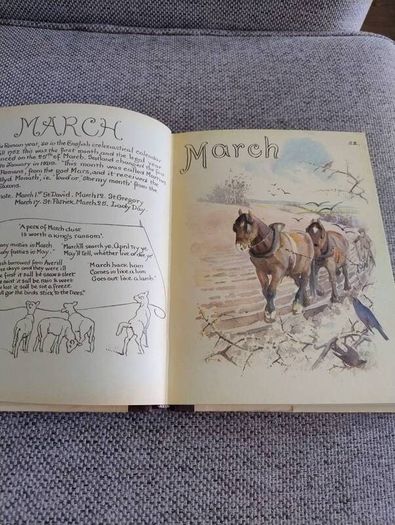 MARCH.
Roman year, so in the English ecclesiastical calendar
till 1752 this was the first month, and the legal year
on the 25th of March. Scotland changed the first
to January in 1600. This month was called Martius
Romans, from the god Mars, and it received the
Monath, i.e. loud or 'stormy month' from the
Saxons.
March 1st St David, March 12. St Gregory
March 17. St Patrick, March 25. Lady Day.
'A peck of March dust
is worth a king's ransom'.
misties in March
frosties in May.
March'll search ye, April try ye,
May'll tell, whether live or die ye'
borrowed from Averill
days and they were ill
first it sall be snaw & sleet
next it sall be rain & weet
last it sall be sic a freeze
gar the birds stick to the trees.'
March hack ham
Comes in like a lion
Goes out like a lamb.
March